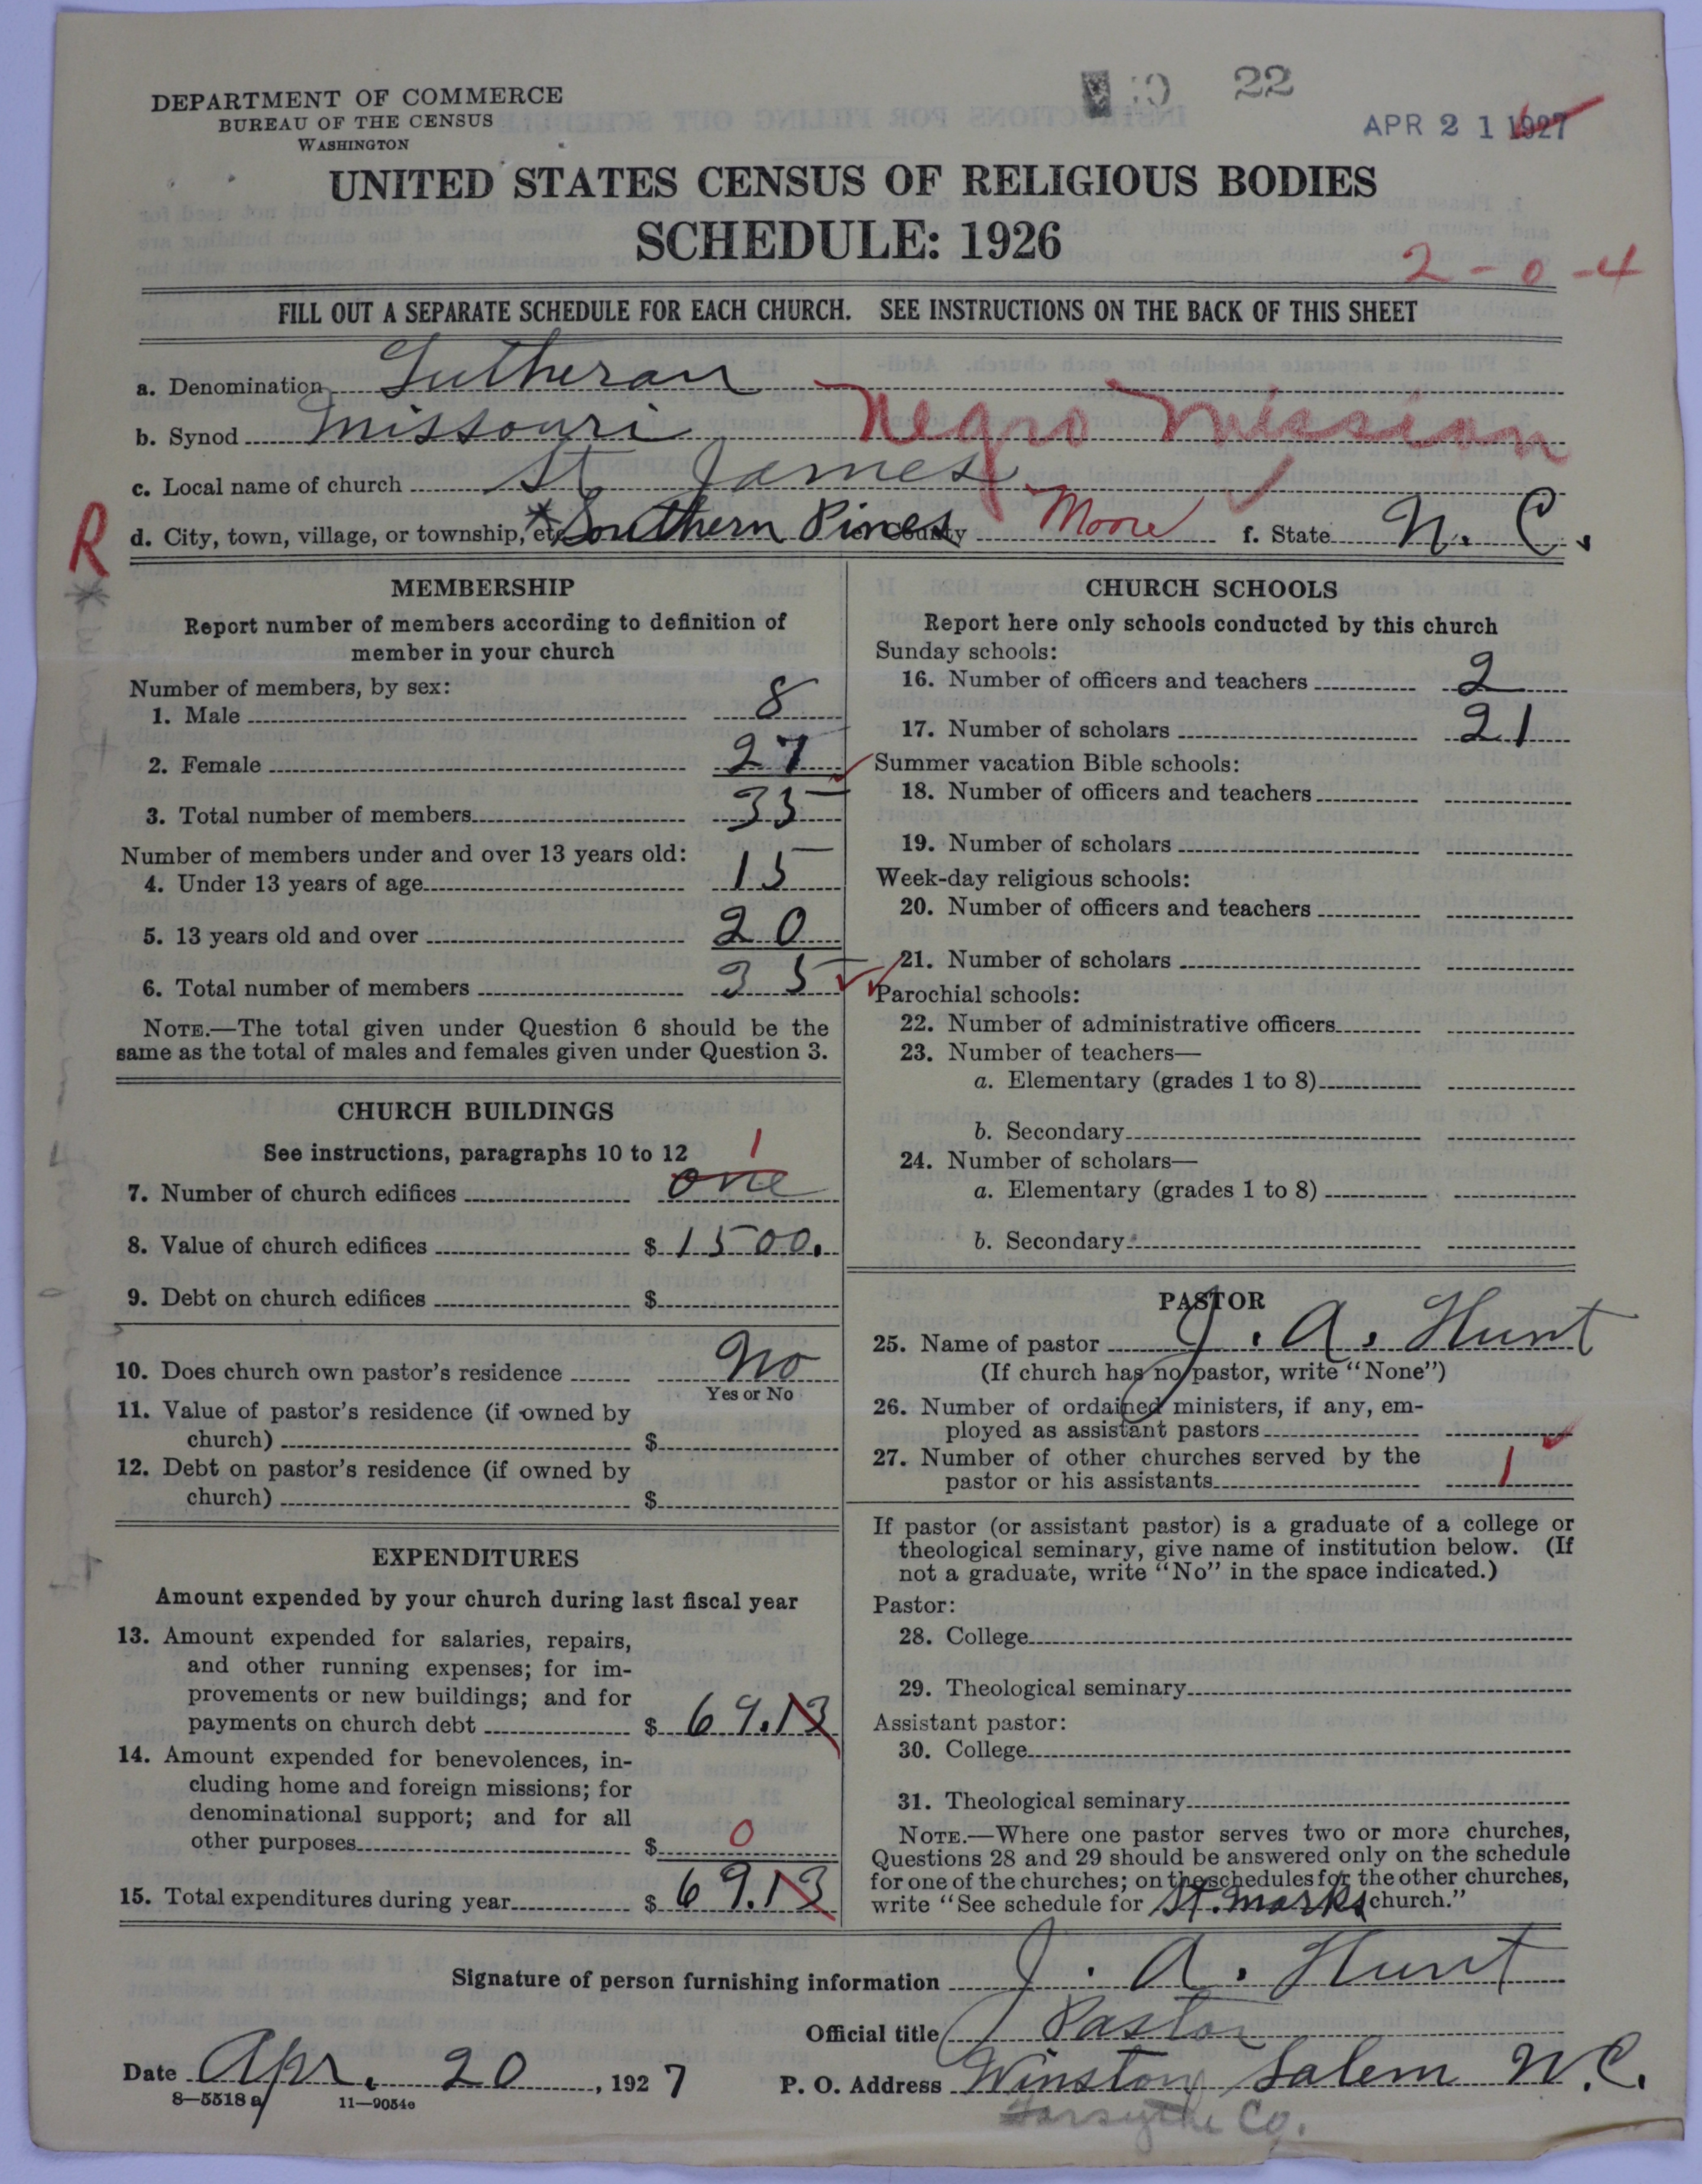 22
APR 21 1927
DEPARTMENT OF COMMERCE
BUREAU OF THE CENSUS
WASHINGTON
UNITED STATES CENSUS OF RELIGIOUS BODIES
SCHEDULE: 1926
2-0-4
FILL OUT A SEPARATE SCHEDULE FOR EACH CHURCH. SEE INSTRUCTIONS ON THE BACK OF THIS SHEET
a. Denomination Lutheran
b. Synod Missouri Negro Mission
c. Local name of church St James
R d. City, town, village, or township, etc. * Southern Pines e. County Moore f. State N. C.
MEMBERSHIP
Report number of members according to definition of
member in your church
Number of members, by sex:
1. Male 8
2. Female 27
3. Total number of members 35
Number of members under and over 13 years old:
4. Under 13 years of age 15
5. 13 years old and over 20
6. Total number of members 35
NOTE.—The total given under Question 6 should be the
same as the total of males and females given under Question 3.
CHURCH BUILDINGS
See instructions, paragraphs 10 to 12
1
7. Number of church edifices one
8. Value of church edifices $ 1500.
9. Debt on church edifices $
10. Does church own pastor's residence No
Yes or No
11. Value of pastor's residence (if owned by
church) $
12. Debt on pastor's residence (if owned by
church) $
EXPENDITURES
Amount expended by your church during last fiscal year
13. Amount expended for salaries, repairs,
and other running expenses; for im-
provements or new buildings; and for
payments on church debt $ 69.13
14. Amount expended for benevolences, in-
cluding home and foreign missions; for
denominational support; and for all
other purposes $ 0
15. Total expenditures during year $ 69.13
CHURCH SCHOOLS
Report here only schools conducted by this church
Sunday schools:
16. Number of officers and teachers 2
17. Number of scholars 21
Summer vacation Bible schools:
18. Number of officers and teachers
19. Number of scholars
Week-day religious schools:
20. Number of officers and teachers
21. Number of scholars
Parochial schools:
22. Number of administrative officers
23. Number of teachers—
a. Elementary (grades 1 to 8)
b. Secondary
24. Number of scholars—
a. Elementary (grades 1 to 8)
b. Secondary
PASTOR
25. Name of pastor J. A. Hunt
(If church has no pastor, write "None")
26. Number of ordained ministers, if any, em-
ployed as assistant pastors
27. Number of other churches served by the
pastor or his assistants 1
If pastor (or assistant pastor) is a graduate of a college or
theological seminary, give name of institution below. (If
not a graduate, write "No" in the space indicated.)
Pastor:
28. College
29. Theological seminary
Assistant pastor:
30. College
31. Theological seminary
NOTE.—Where one pastor serves two or more churches,
Questions 28 and 29 should be answered only on the schedule
for one of the churches; on the schedules for the other churches,
write "See schedule for St. Marks church."
Signature of person furnishing information J. A. Hunt
Official title Pastor
Date Apr. 20, 1927 P. O. Address Winston Salem N.C.
8—5518 a 11—9054e
Forsythe Co.